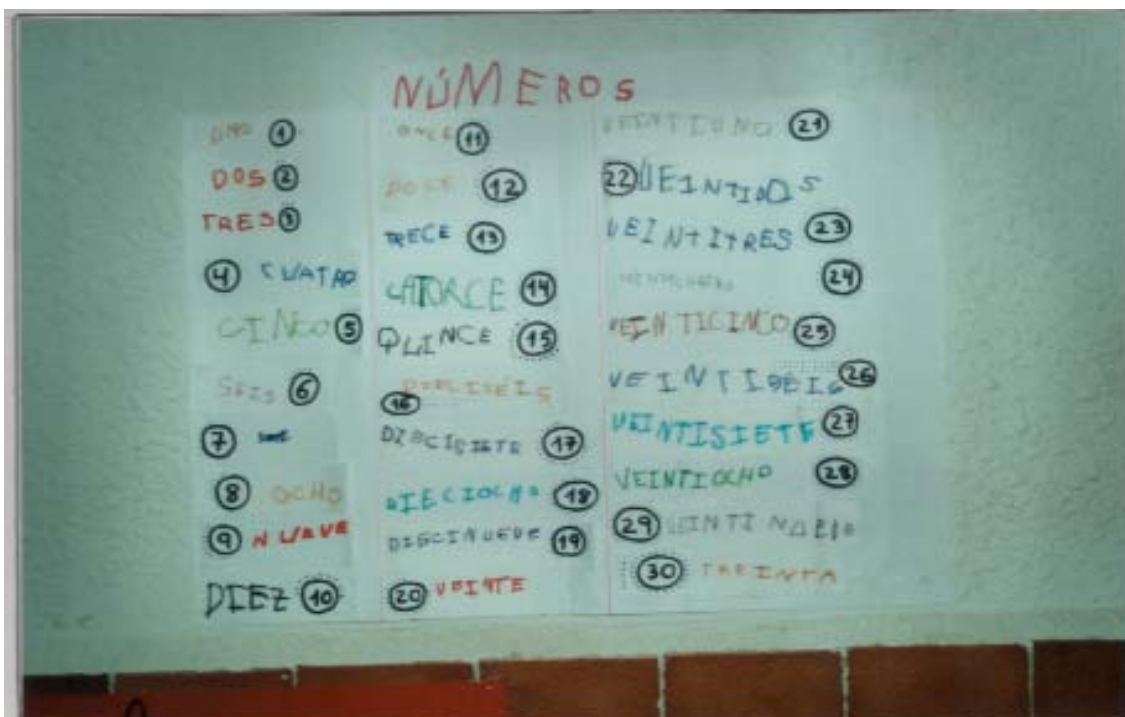 NÚMEROS
UNO 1
DOS 2
TRES 3
4 CUATRO
CINCO 5
SEIS 6
7
8 OCHO
9 NUAVE
DIEZ 10
ONCE 11
DOCE 12
TRECE 13
CATORCE 14
QUINCE 15
16
DIECISIETE 17
DIECIOCHO 18
DIECINUEDE 19
20 VEINTE
VEINTIUNO 21
22 VEINTIDOS
VEINTITRES 23
24
VEINTICINCO 25
VEINTISÉIS 26
VEINTISIETE 27
VEINTIOCHO 28
29
30 TREINTA